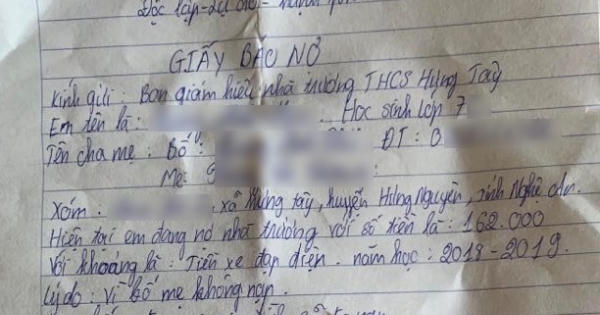 Độc lập - Tự do -
GIẤY BÁO NỢ
Kính gửi : Ban giám hiệu nhà trường THCS Hưng Tây
Em tên là : . Học sinh lớp 7
Tên cha mẹ : Bố : ĐT : 0
Mẹ:
Xóm : , xã Hưng tây, huyện Hưng Nguyên, tỉnh Nghệ An.
Hiện tại em đang nợ nhà trường với số tiền là : 162.000
Với khoảng là : Tiền xe đạp điện . năm học : 2018 - 2019.
Lý do : vì bố mẹ không nạp.